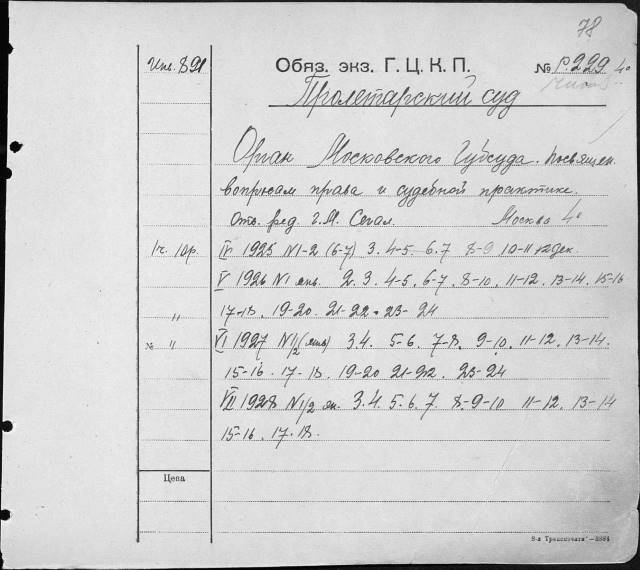 78
Инв. 891
Обяз. экз. Г. Ц. К. П.
№ Р.229 4°
Пролетарский суд
Орган Московского Губсуда. Посвящен.
вопросам права и судебной практике.
Отв. ред. Г.М. Сегал. Москва 4°
1 ч. 10 р. IV 1925 N1-2 (6-7) 3. 4-5. 6.7 8-9 10-11 12 дек.
V 1926 N1 янв. 2. 3. 4-5. 6-7. 8-10. 11-12. 13-14. 15-16
" 17-18. 19-20. 21-22. 23-24
№ " VI 1927 N1/2 (янв) 3.4. 5-6. 7-8. 9-10. 11-12. 13-14.
15-16. 17-18. 19-20 21-22. 23-24
VII 1928 N1/2 ян. 3.4. 5.6. 7. 8-9-10 11-12. 13-14
15-16. 17-18.
Цена